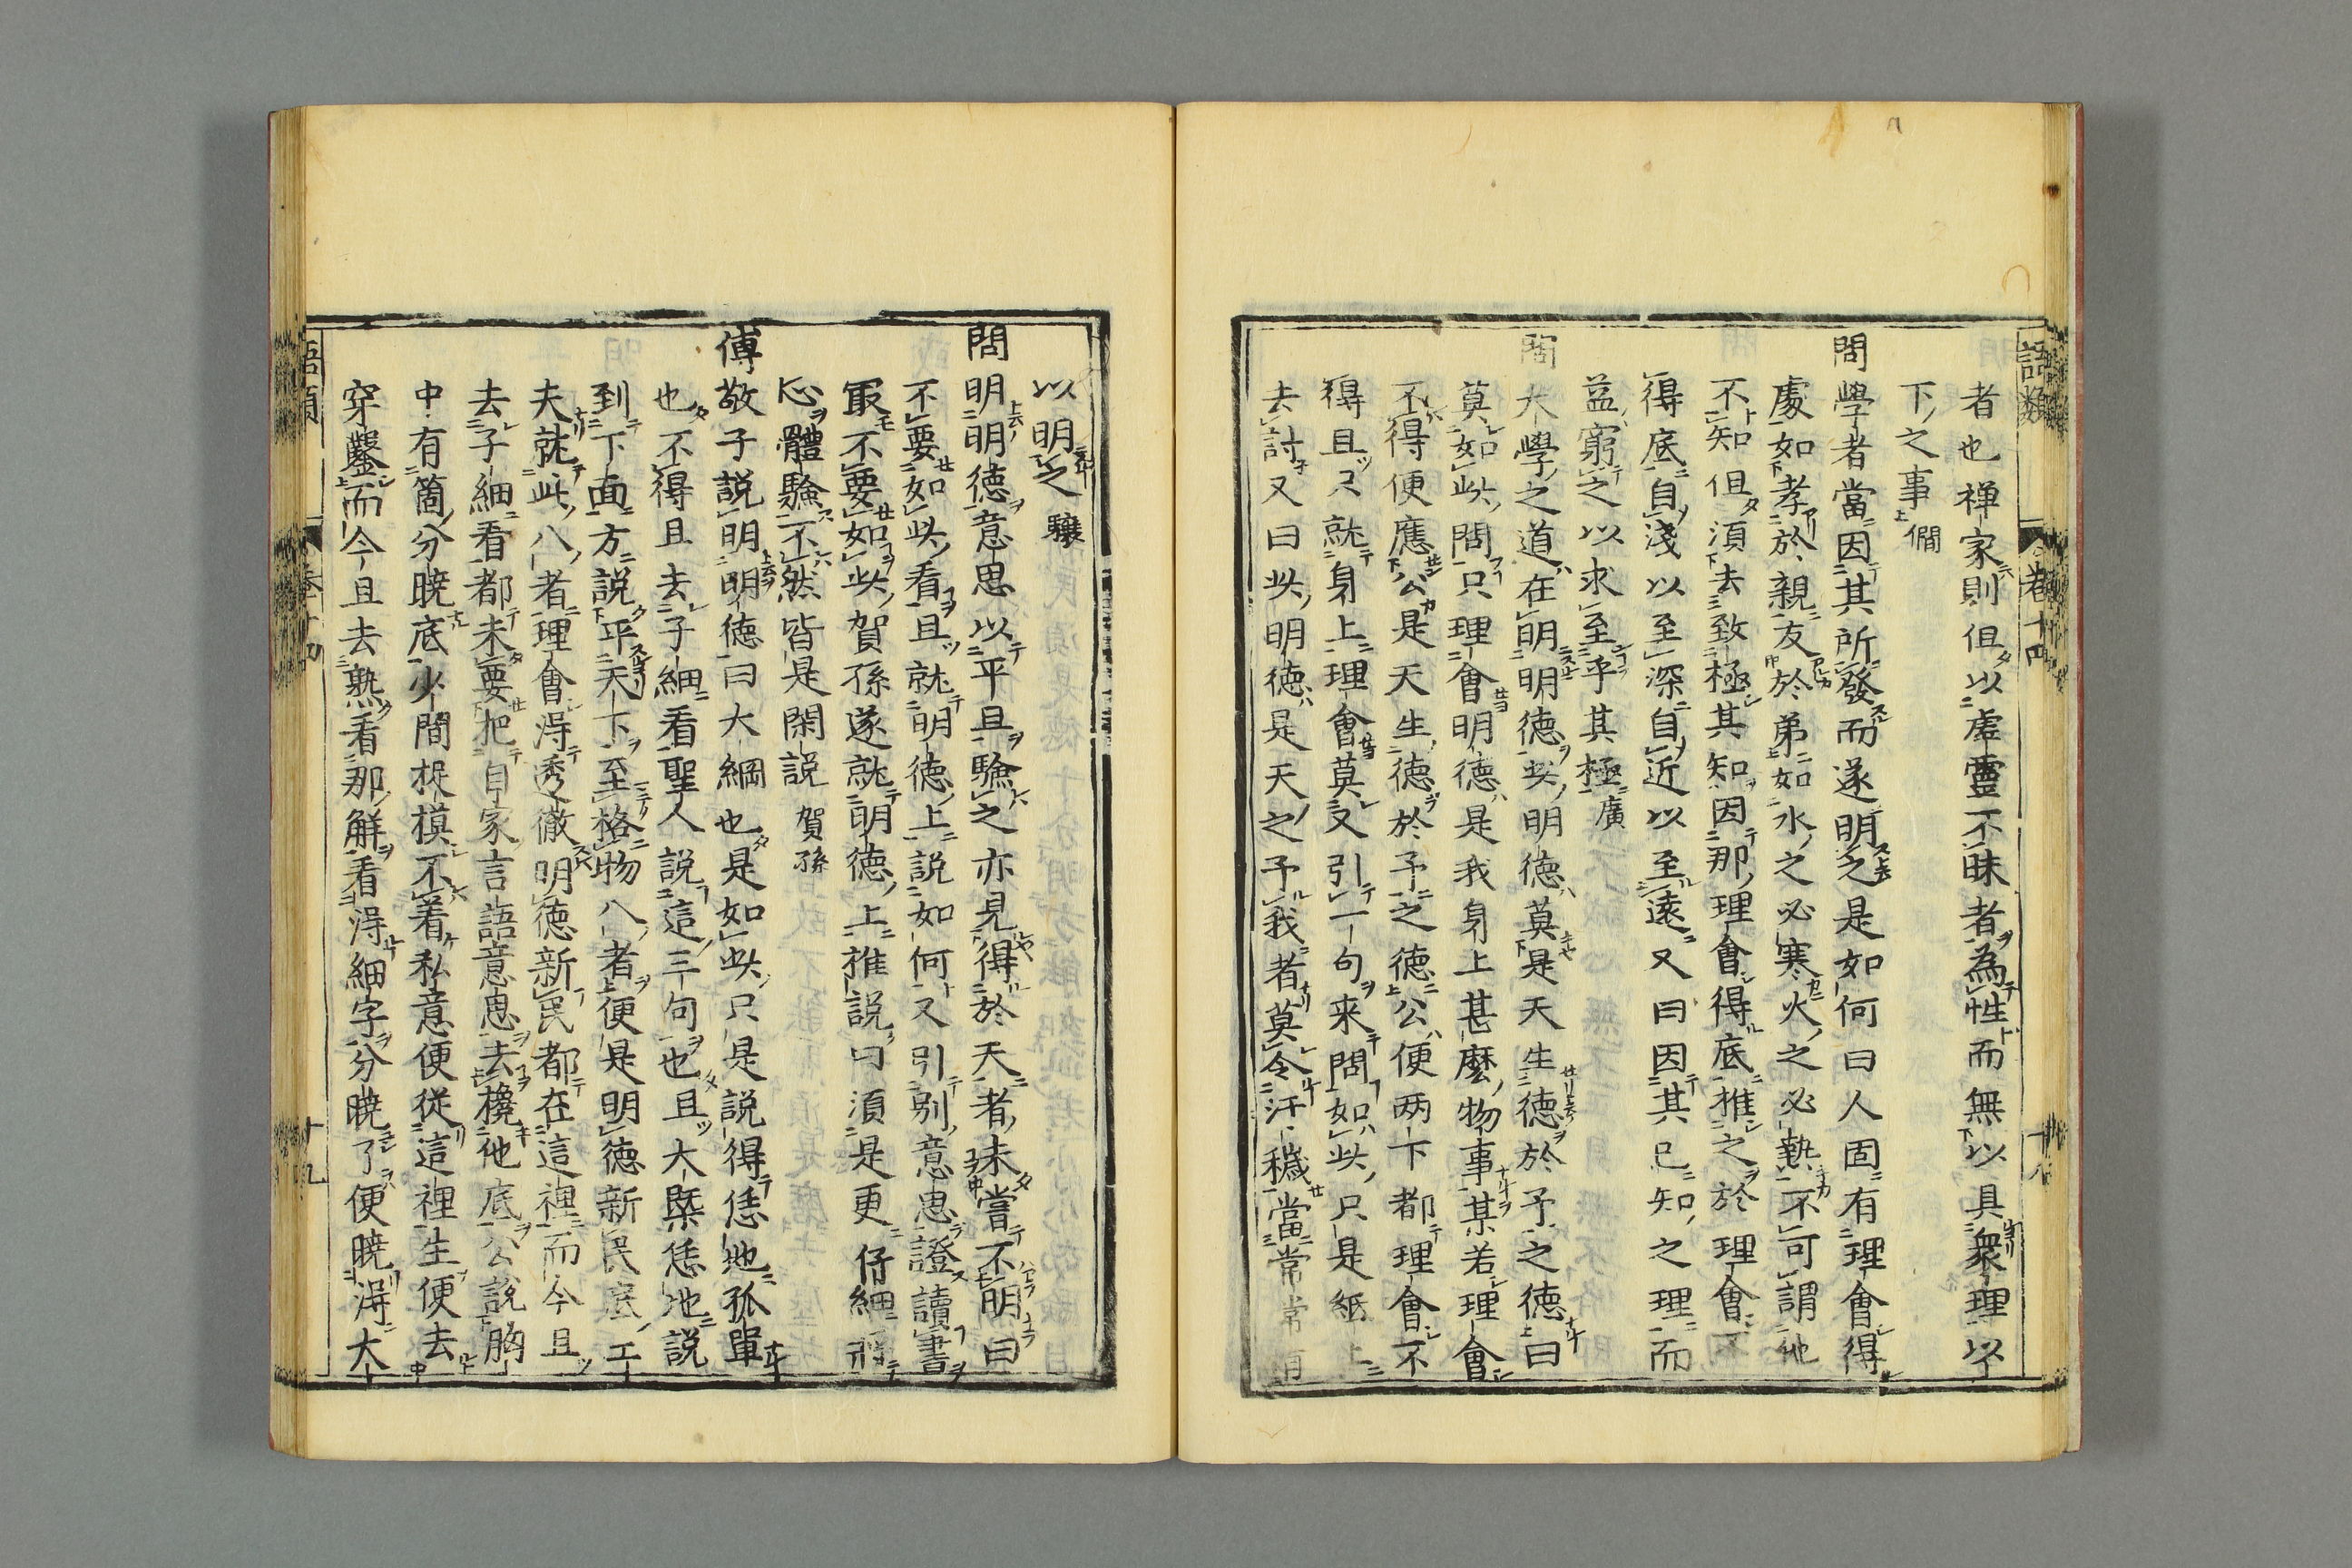 語類 卷十四 十八
者也禅家則但以虚靈不昧者為性而無以具衆理以
下之事 僩
問學者當因其所發而遂明之是如何曰人固有理會得
處如孝於親友於弟如水之必寒火之必熱不可謂他
不知但須去致極其知因那理會得底推之於理會不
得底自淺以至深自近以至遠又曰因其已知之理而
益窮之以求至乎其極 廣
問大學之道在明明德此明德莫是天生德於予之德曰
莫如此問只理會明德是我身上甚麼物事某若理會
不得便應公是天生德於予之德公便两下都理會不
得且只就身上理會莫又引一句来問如此只是紙上
去討又曰此明德是天之予我者莫令汙穢當常常須
以明之 驤
問明明德意思以平旦驗之亦見得於天者未嘗不明曰
不要如此看且就明德上說如何又引别意思證讀書
最不要如此賀孫遂就明德上推說曰須是更仔細將
心體驗不然皆是閑說 賀孫
傅敬子說明明德曰大綱也是如此只是說得恁地孤單
也不得且去子細看聖人說這三句也且大槩恁地說
到下面方說平天下至格物八者便是明德新民底工
夫就此八者理會得透徹明德新民都在這裡而今且
去子細看都未要把自家言語意思去攙他底公說胸
中有箇分曉底少間捉摸不着私意便從這裡生便去
穿鑿而今且去熟看那解看得細字分曉了便曉得大
語類 卷十四 十九